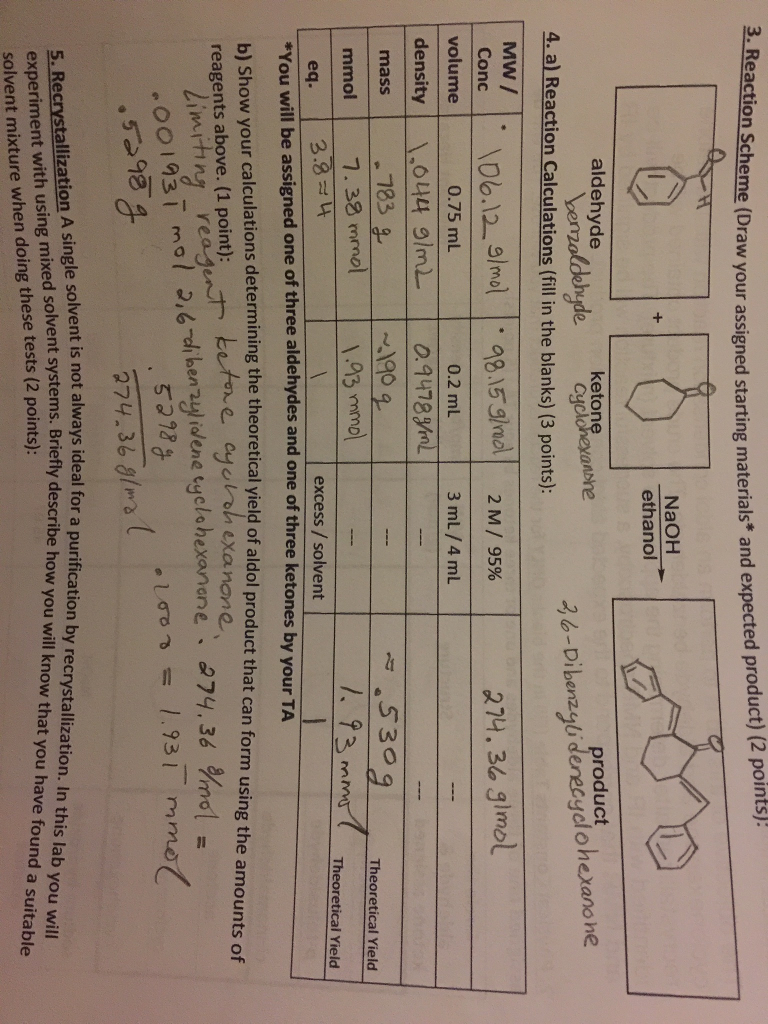 3. Reaction Scheme (Draw your assigned starting materials* and expected product) (2 points):
O
H
+
O
NaOH
ethanol
O
aldehyde
ketone
product
benzaldehyde
cyclohexanone
2,6-Dibenzylidenecyclohexanone
4. a) Reaction Calculations (fill in the blanks) (3 points):
MW / Conc 106.12 g/mol 98.15 g/mol 2 M / 95% 274.36 g/mol
volume 0.75 mL 0.2 mL 3 mL / 4 mL ---
density 1.044 g/mL 0.9478 g/mL --- ---
mass .783 g ~.190 g --- ≈ .530g Theoretical Yield
mmol 7.38 mmol 1.93 mmol --- 1.93 mmol Theoretical Yield
eq. 3.8 ≈ 4 1 excess / solvent 1
*You will be assigned one of three aldehydes and one of three ketones by your TA
b) Show your calculations determining the theoretical yield of aldol product that can form using the amounts of
reagents above. (1 point):
Limiting reagent ketone cyclohexanone,
.001931 mol 2,6-dibenzylidenecyclohexanone . 274.36 g/mol =
.5298 g
.5298g
274.36 g/mol
= 1.931 mmol
5. Recrystallization A single solvent is not always ideal for a purification by recrystallization. In this lab you will
experiment with using mixed solvent systems. Briefly describe how you will know that you have found a suitable
solvent mixture when doing these tests (2 points):